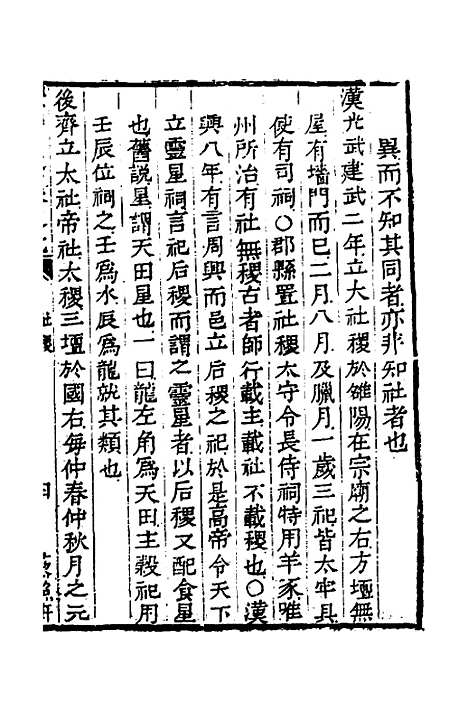 異而不知其同者亦非知社者也
漢光武建武二年立大社稷於雒陽在宗廟之右方壇無
屋有墻門而已二月八月及臘月一歲三祀皆太牢具
使有司祠○郡縣置社稷太守令長侍祠特用羊豕唯
州所治有社無稷古者師行載主載社不載稷也○漢
興八年有言周興而邑立后稷之祀於是高帝令天下
立靈星祠言祀后稷而謂之靈星者以后稷又配食星
也舊說星謂天田星也一曰龍左角爲天田主穀祀用
壬辰位祠之壬爲水辰爲龍就其類也
後齊立太社帝社太稷三壇於國右每仲春仲秋月之元
社稷
四